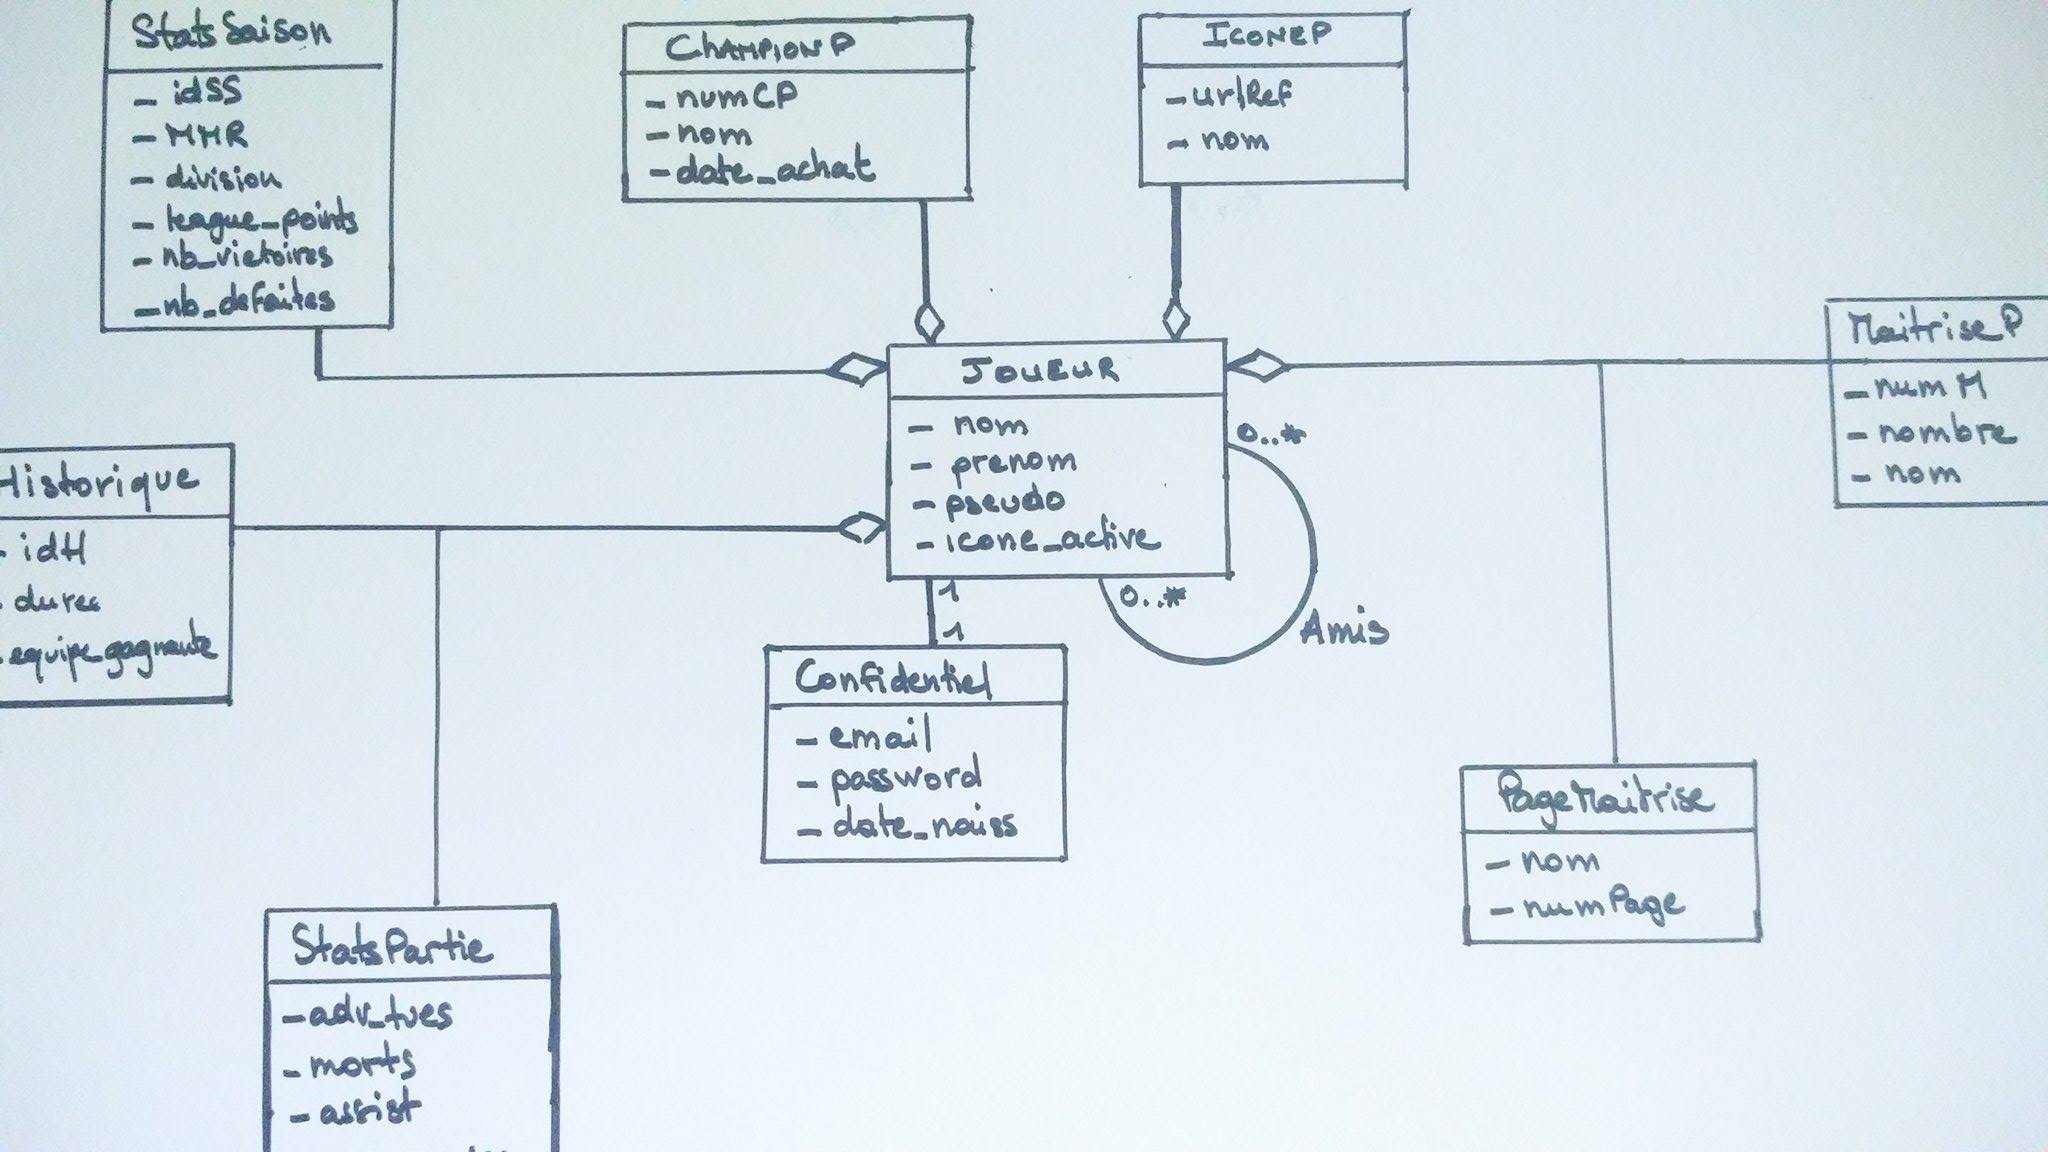 StatsSaison
- idSS
- MMR
- division
- league_points
- nb_victoires
- nb_defaites
ChampionP
- numCP
- nom
- date_achat
IconeP
- urlRef
- nom
MaitriseP
- numM
- nombre
- nom
Joueur
- nom
- prenom
- pseudo
- icone_active
0..*
0..*
Amis
1
1
Historique
- idH
- duree
- equipe_gagnante
Confidentiel
- email
- password
- date_naiss
PageMaitrise
- nom
- numPage
StatsPartie
- adv_tues
- morts
- assist